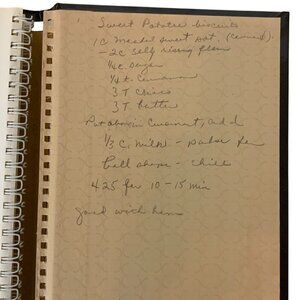 Sweet Potatoe biscuits
1 C Mashed sweet pot. (canned)
- 2 C Self rising flour
1/4 c. Sugar
1/4 t. Cinnamon
3 T Crisco
3 T butter
Put above in Cuisinart, add
1/3 C. Milk - pulse for
ball - chill
425 for 10 - 15 min
good with ham